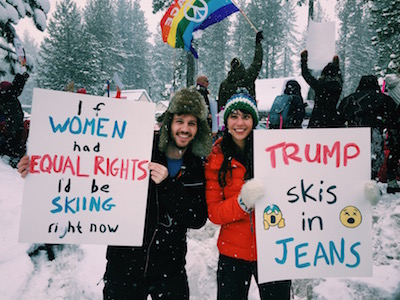 If
WOMEN
had
EQUAL RIGHTS
I'd be
SKIING
right now
TRUMP
skis
in
JEANS